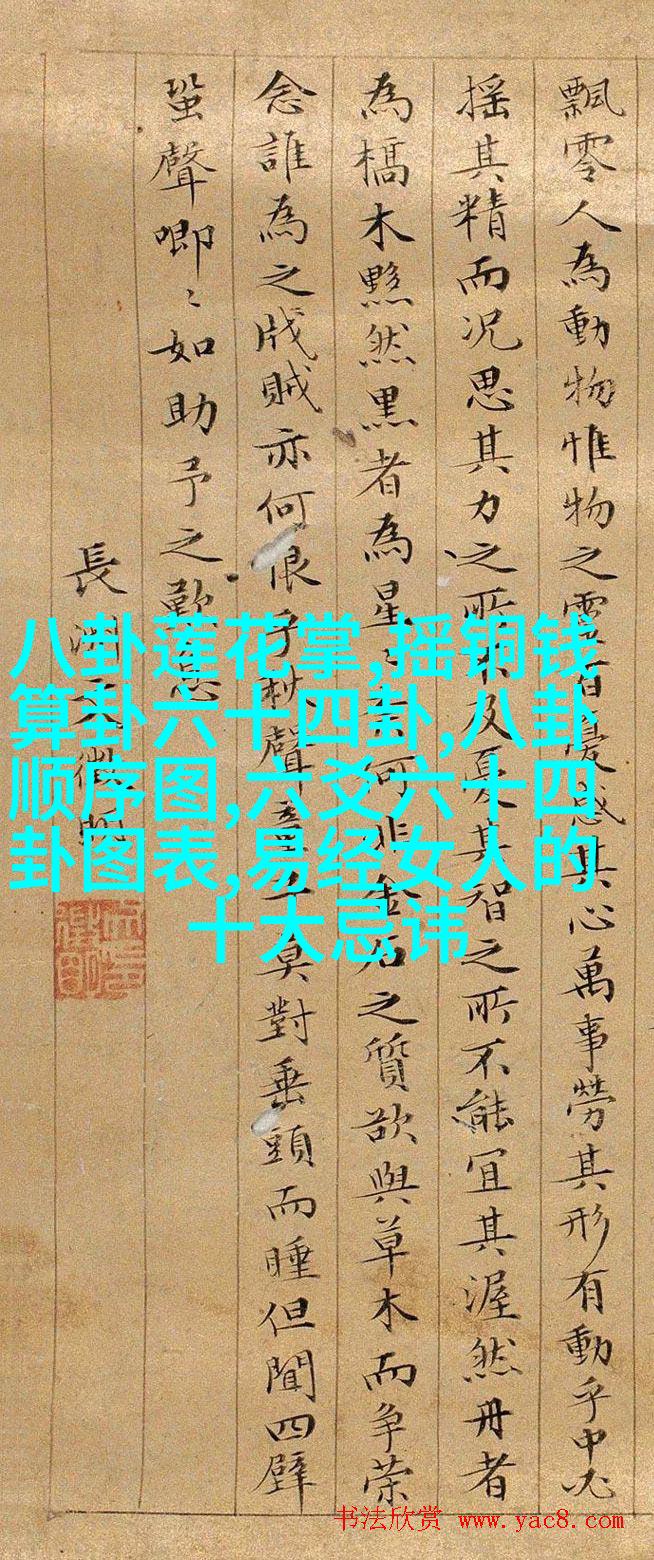 飄零人為動物惟物之靈百憂感其心萬事勞其形有動乎中必
搖其精而况思其力之所不及憂其智之所不能宜其渥然丹者
為槁木黟然黑者為星〻奈何非金石之質欲與草木而争榮
念誰為之戕賊亦何恨乎秋聲童子莫對垂頭而睡但聞四壁
蛩聲唧〻如助予之歎息
長洲文徵明
八卦莲花掌,摇铜钱
算卦六十四卦,八卦
顺序图,六爻六十四
卦图表,易经女人的
十大忌讳
书法欣赏 www.yac8.com